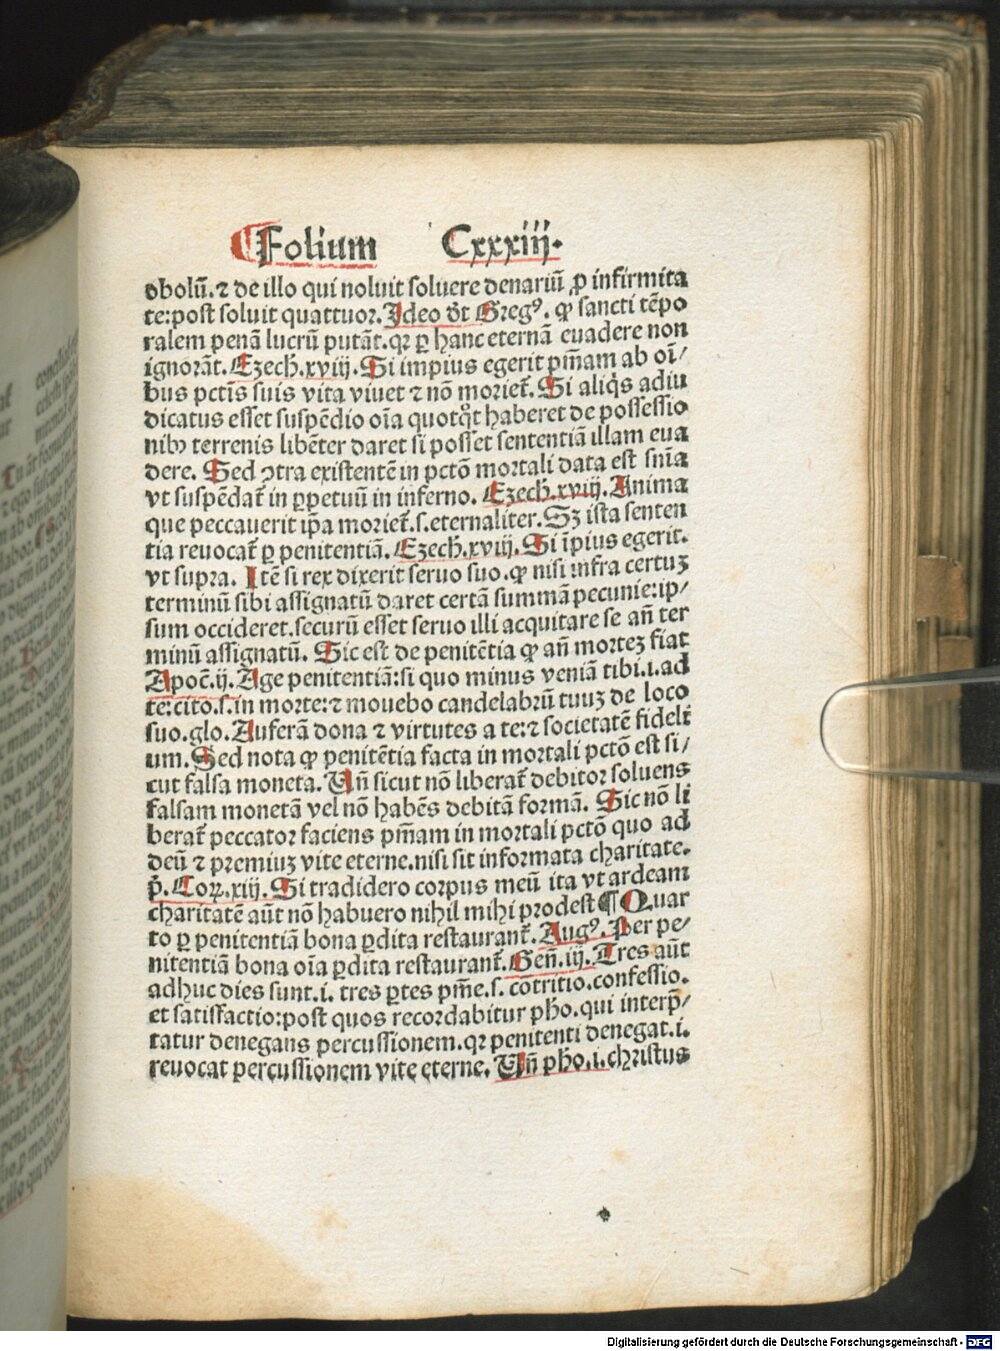 ¶Folium Cxxxiij.
obolū. ⁊ de illo qui noluit soluere denariū ꝓ infirmita
te: post soluit quattuor. Ideo dt̄ Greg⁹. ꝙ sancti tēpo
ralem penā lucrū putāt. qꝛ ꝑ hanc eternā euadere non
ignorāt. Ezech. xviij. Si impius egerit pn̄iam ab oī/
bus pctīs suis vita viuet ⁊ nō moriet̄. Si aliq̄s adiu
dicatus esset suspēdio oīa quotqt̄ haberet de possessio
nibꝫ terrenis libēter daret si posset sententiā illam eua
dere. Sed ꝯtra existentē in pctō mortali data est sn̄ia
vt suspēdat̄ in ꝑpetuū in inferno. Ezech. xviij. Anima
que peccauerit ip̄a moriet̄. s. eternaliter. Sꝫ ista senten
tia reuocat̄ ꝑ penitentiā. Ezech. xviij. Si īpius egerit.
vt supra. Itē si rex dixerit seruo suo. ꝙ nisi infra certuꝫ
terminū sibi assignatū daret certā summā pecunie: ip/
sum occideret. securū esset seruo illi acquitare se an̄ ter
minū assignatū. Sic est de penitētia ꝙ an̄ morteꝫ fiat
Apoc̄. ij. Age penitentiā: si quo minus veniā tibi. i. ad
te: cito. s. in morte: ⁊ mouebo candelabrū tuuꝫ de loco
suo. glo. Auferā dona ⁊ virtutes a te: ⁊ societatē fideli
um. Sed nota ꝙ penitētia facta in mortali pctō est si/
cut falsa moneta. Un̄ sicut nō liberat̄ debitor soluens
falsam monetā vel nō habēs debitā formā. Sic nō li
berat̄ peccator faciens pn̄iam in mortali pctō quo ad
deū ⁊ premiuꝫ vite eterne. nisi sit informata charitate.
p̄. Coꝝ. xiij. Si tradidero corpus meū ita vt ardeam
charitatē aūt nō habuero nihil mihi prodest ¶ Quar
to ꝑ penitentiā bona ꝑdita restaurant̄. Aug⁹. Per pe/
nitentiā bona oīa ꝑdita restaurant̄. Gen̄. iij. Tres aūt
adhuc dies sunt. i. tres ꝑtes pn̄ie. s. cōtritio. confessio.
et satisfactio: post quos recordabitur pho. qui interp̄/
tatur denegans percussionem. qꝛ penitenti denegat. i.
reuocat percussionem vite eterne. Un̄ pho. i. christus
Digitalisierung gefördert durch die Deutsche Forschungsgemeinschaft - DFG